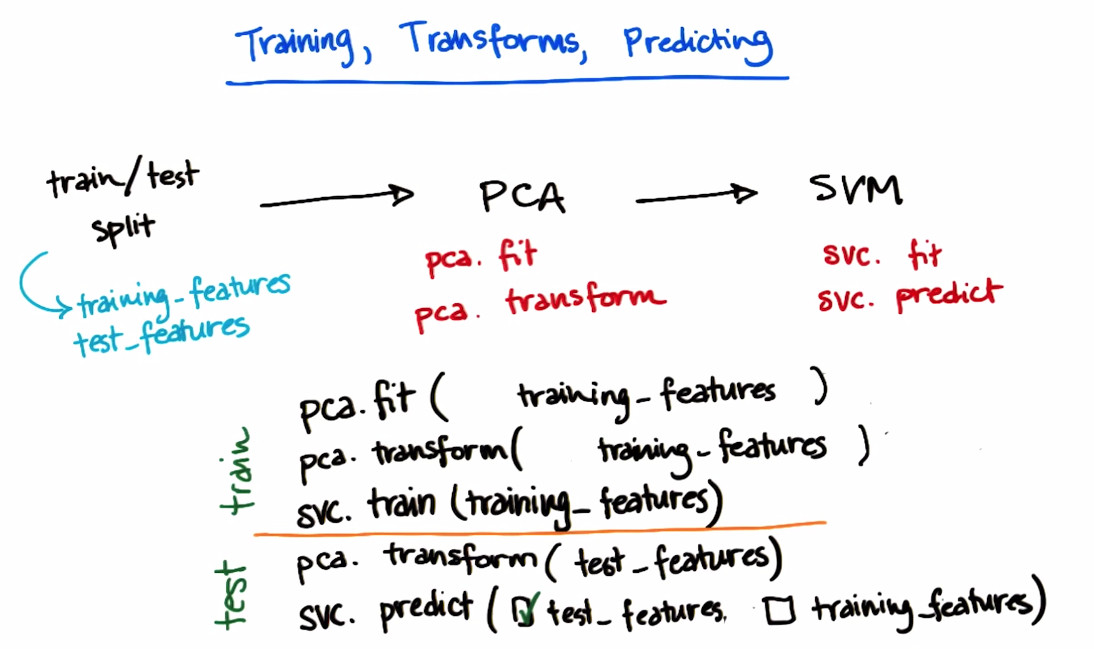 Training, Transforms, Predicting
train/test
split
training_features
test_features
PCA
pca. fit
pca. transform
SVM
svc. fit
svc. predict
train
pca.fit ( training_features )
pca. transform( training_features )
svc. train (training_features)
test
pca. transform( test_features)
svc. predict ( ☑ test_features, ☐ training_features)